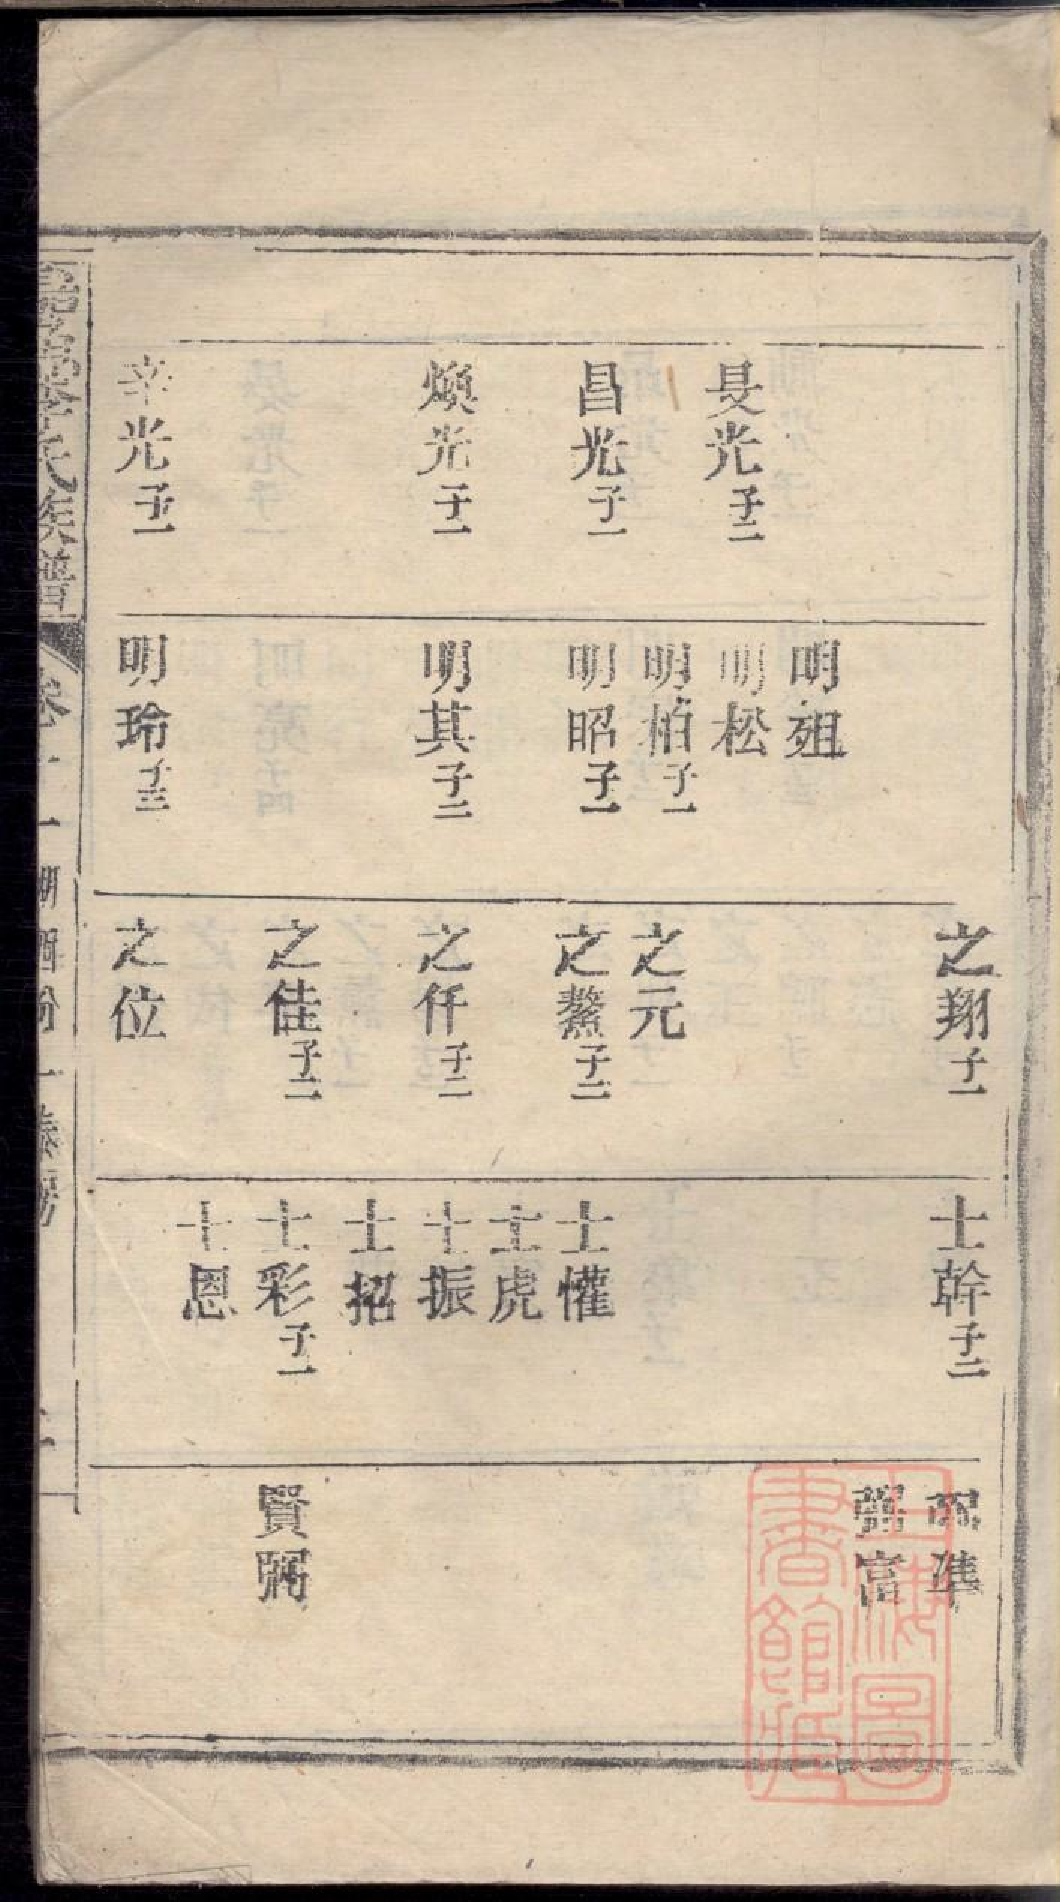 昌光子一
煥光子一
光子二
光子一
明
明松
明柏子一
明昭子一
明其子二
明玲子三
之翔子一
之元
之鰲子二
之仟子二
之佳子二
之位
士幹子二
士懽
士虎
士振
士招
士彩子一
士恩
準
富
賢弼
氏族譜
上海圖書館藏